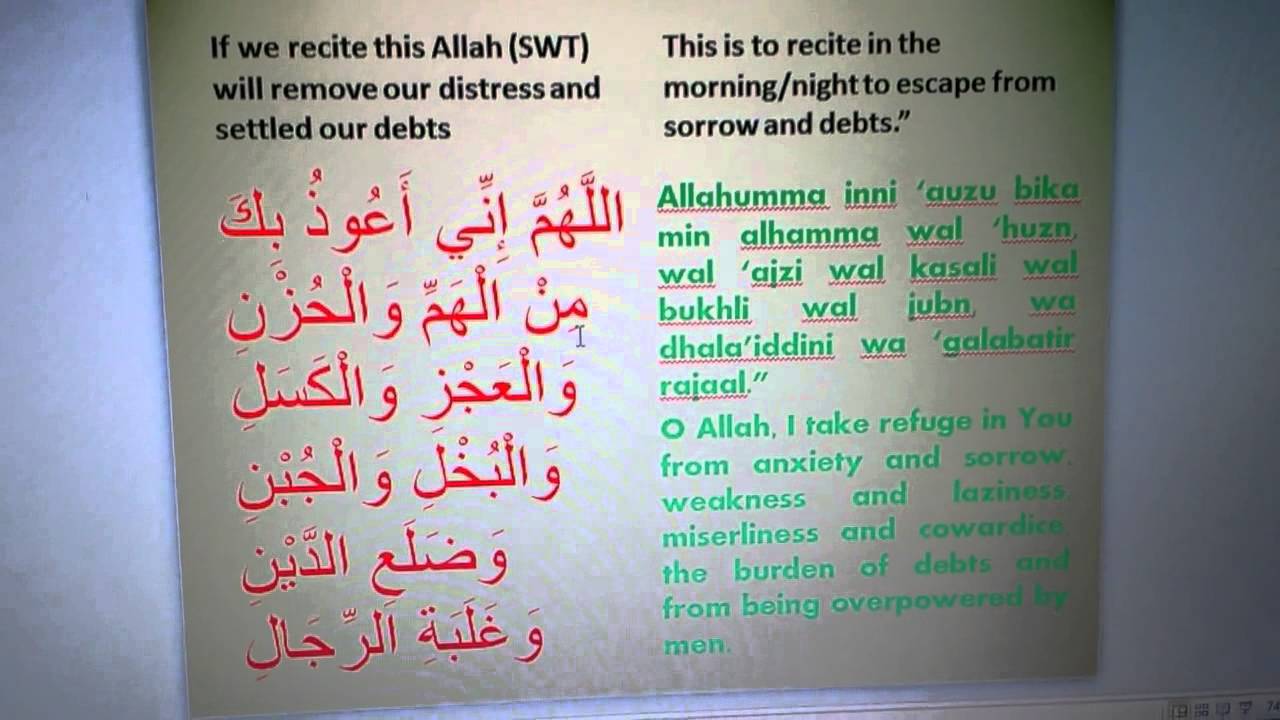 If we recite this Allah (SWT)
will remove our distress and
settled our debts
اللَّهُمَّ إِنِّي أَعُوذُ بِكَ
مِنْ الْهَمِّ وَالْحُزْنِ
وَالْعَجْزِ وَالْكَسَلِ
وَالْبُخْلِ وَالْجُبْنِ
وَضَلَعِ الدَّيْنِ
وَغَلَبَةِ الرِّجَالِ
This is to recite in the
morning/night to escape from
sorrow and debts.”
Allahumma inni ‘auzu bika
min alhamma wal ‘huzn,
wal ‘ajzi wal kasali wal
bukhli wal jubn, wa
dhala’iddini wa ‘galabatir
rajaal.”
O Allah, I take refuge in You
from anxiety and sorrow,
weakness and laziness,
miserliness and cowardice,
the burden of debts and
from being overpowered by
men.